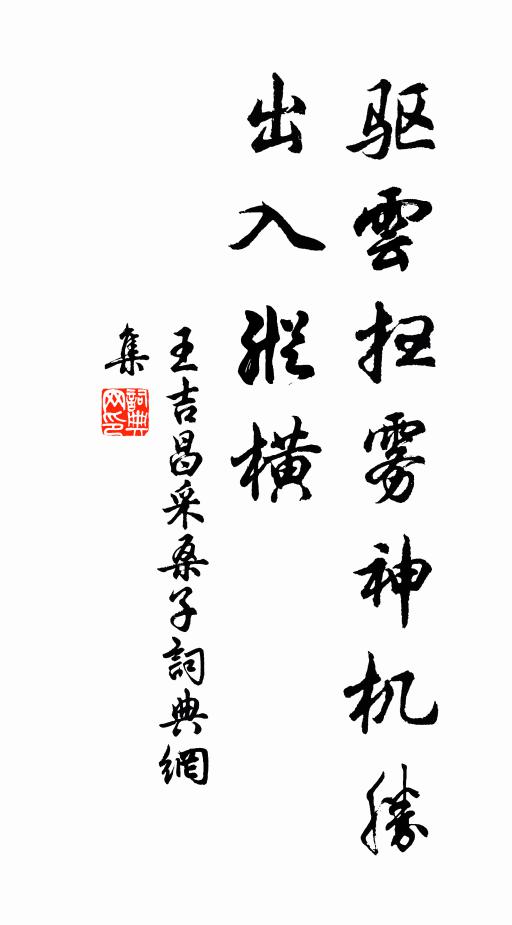 驱雲扫雾神机勝
出入縱橫
王吉昌采桑子詞典網
集
詞典
网印